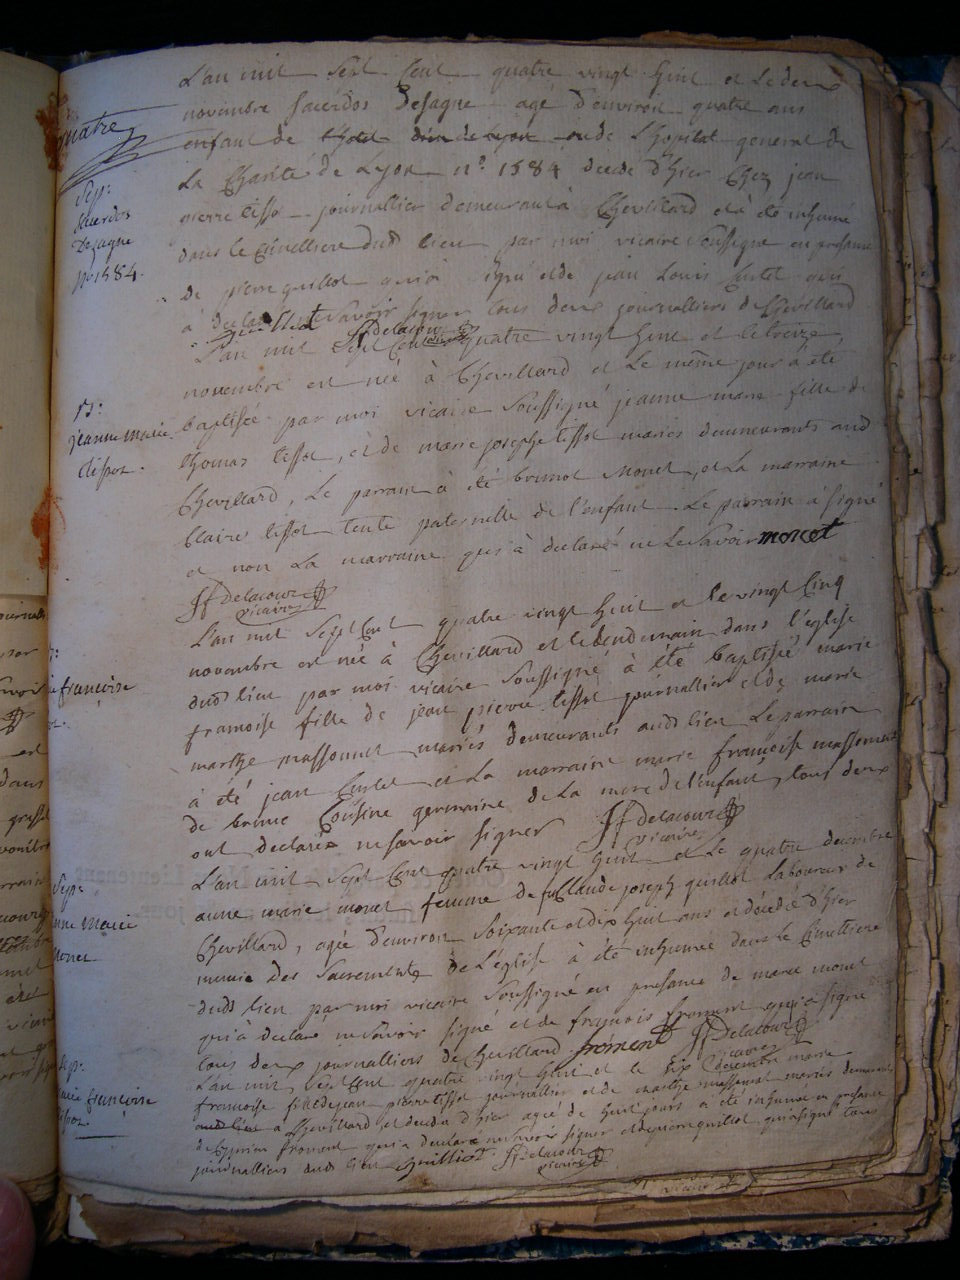 quatre
L'an mil Sept Cent quatre vingt huit et le deux
novembre Sacerdos Desague agé d'environ quatre ans
enfant de l'hopital general de
La Charité de Lyon n° 1584 decedé d'hier Chez jean
pierre tissot journallier demeurant à Chevillard et à été inhumé
dans le Cimettiere dud lieu par moi vicaire Soussigné en presance
de pierre quillot qui à signé et de jean Louis Curtet qui
à declaré ne Savoir signer tous deux journalliers de Chevillard
Sep:
Sacerdos
Desague
N° 1584.
JfDelacour
L'an mil Sept Cent quatre vingt huit et le treize
novembre est née à Chevillard et Le même jour à été
baptisée par moi vicaire Soussigné jeanne marie fille de
thomas tissot, et de marie josephe tissot mariés demeurants aud
Chevillard, Le parrain à été brunot Monet, et La marraine
Claire tissot tente paternelle de l'enfant Le parrain à Signé
et non La marraine qui à declaré ne Le Savoir moret
B:
jeanne marie
tissot.
JfDelacour
vicaire
L'an mil Sept Cent quatre vingt huit et le vingt Cinq
novembre est née à Chevillard et le lendemain dans l'église
dud lieu par moi vicaire Soussigné à été baptisée marie
francoise fille de jean pierre tissot journallier et de marie
marthe massonnet mariés demeurants aud lieu Le parrain
à été jean Curtet et La marraine marie françoise massonnet
de brenne Cousine germaine de La mere de l'enfant, tous deux
ont declarée ne savoir signer JfDelacour
vicaire
françoise
L'an mil Sept Cent quatre vingt huit et Le quatre decembre
anne marie monet femme de Claude joseph quillot Laboureur de
Chevillard, agée d'environ Soixante et dix huit ans et décédée d'hier
munie Des Sacrements De L'église à été inhumée dans Le Cimettiere
dud lieu par moi vicaire Soussigné en presance de monet
qui à declaré ne Savoir signé et de françois froment qui à signé
tous deux journalliers de Chevillard froment JfDelacour
vicaire
Sep:
anne Marie
Monet
L'an mil sept Cent quatre vingt huit et le six decembre marie
francoise fille de jean pierre tissot journallier et de marthe massonnet mariés demeurants
à Chevillard et décédée d'hier agée de huit jours à été inhumée en presance
de froment qui à declaré ne savoir signer et de pierre quillot qui à signé tous
journalliers aud lieu Quilliot JfDelacour
vicaire
Sep:
marie françoise
tissot